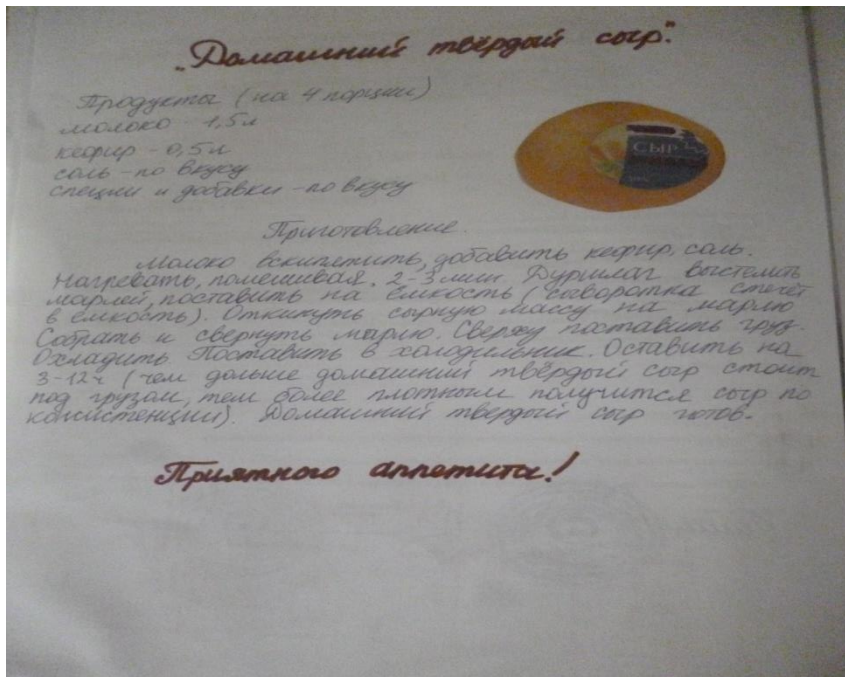 „Домашний твёрдый сыр".
Продукты (на 4 порции)
молоко - 1,5л
кефир - 0,5л
соль - по вкусу
специи и добавки - по вкусу
СЫР
Приготовление.
Молоко вскипятить, добавить кефир, соль.
Нагревать, помешивая. 2-3 мин. Дуршлаг выстелить
марлей, поставить на ёмкость (сыворотка стечёт
в ёмкость). Откинуть сырную массу на марлю
Собрать и свернуть марлю. Сверху поставить груз.
Охладить Поставить в холодильник. Оставить на
3-12ч (чем дольше домашний твёрдый сыр стоит
под грузом, тем более плотным получится сыр по
консистенции). Домашний твердый сыр готов.
Приятного аппетита!